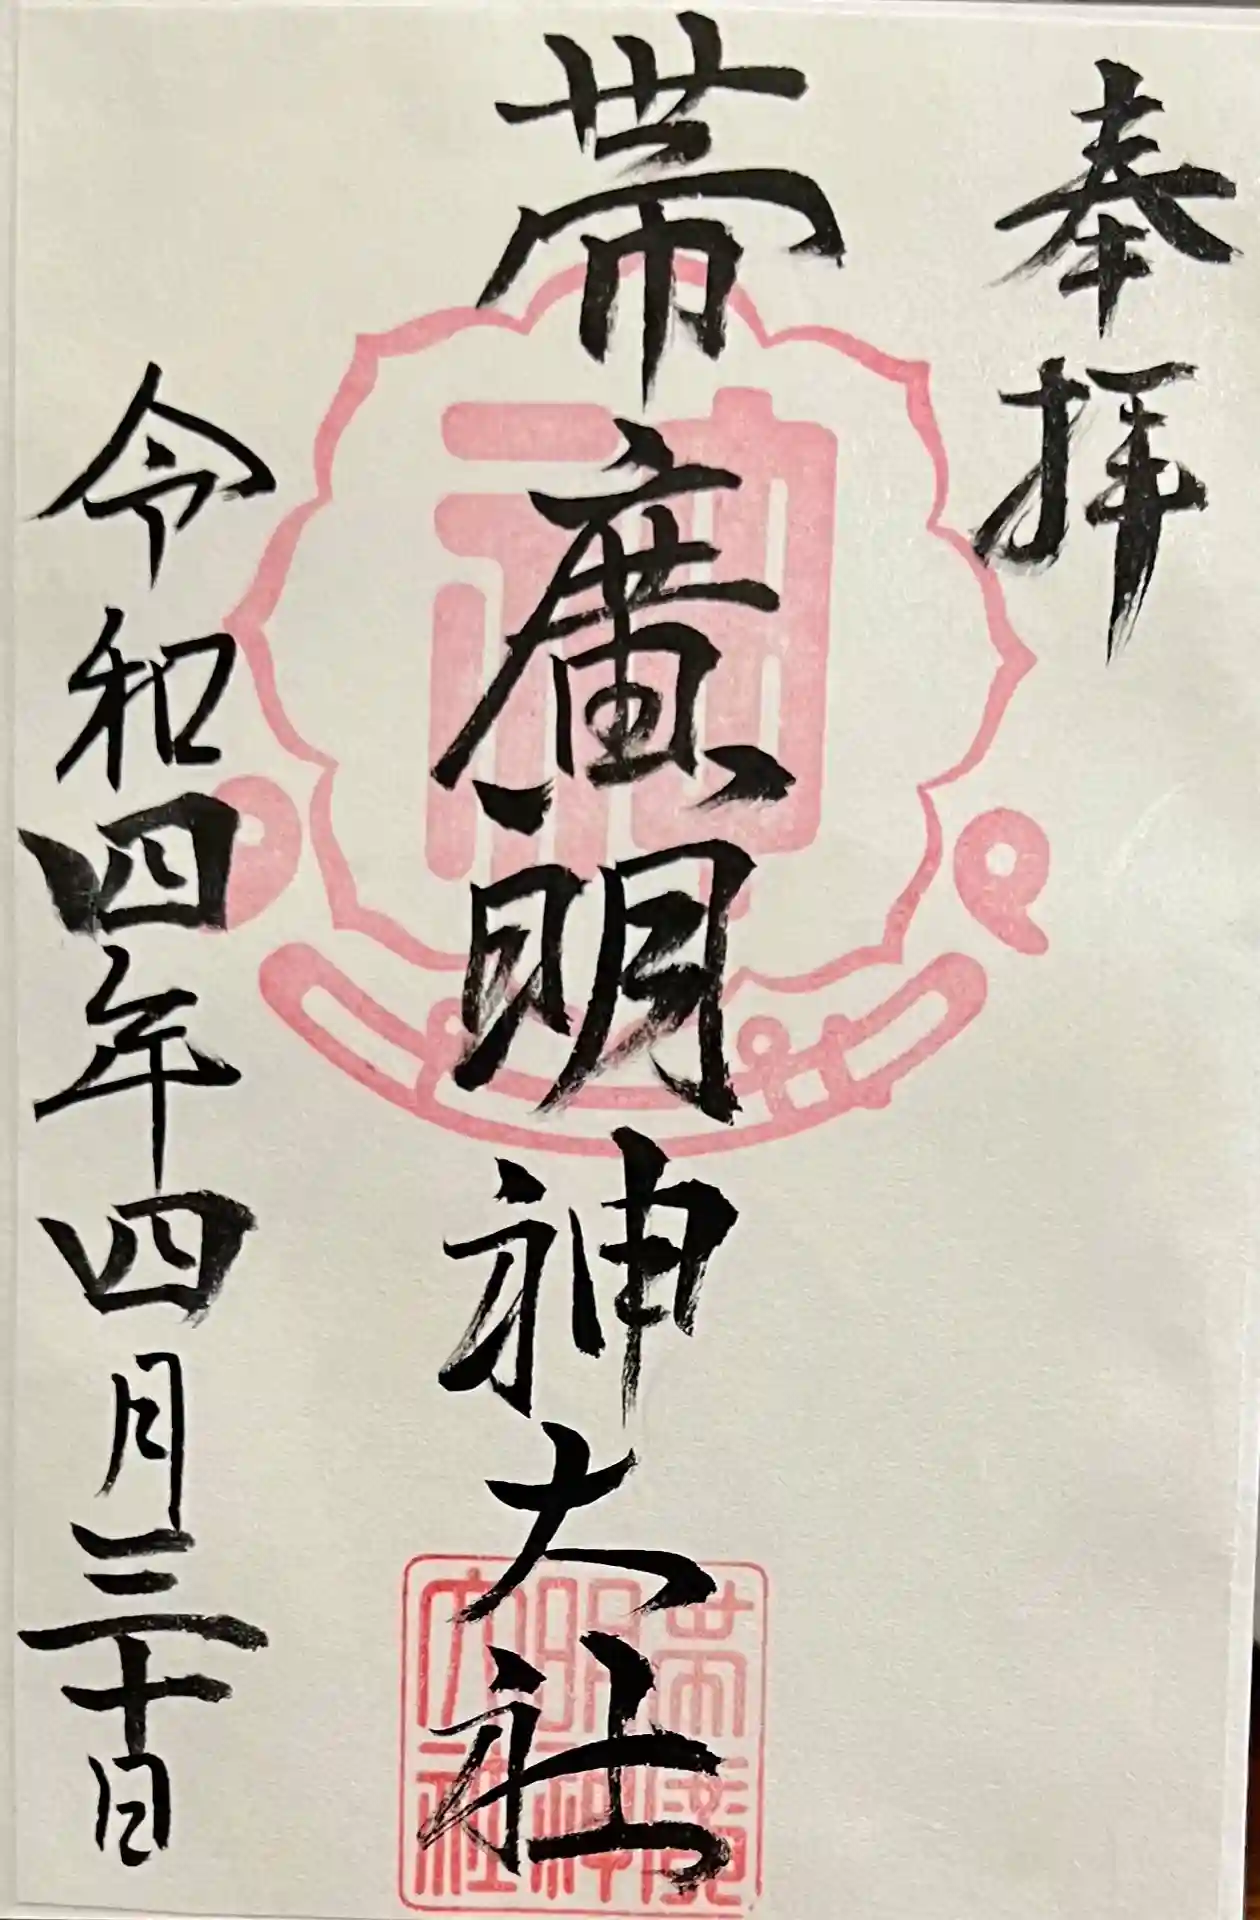 奉拝
帯廣明神大社
令和四年四月三十日
帯廣
明神
大社